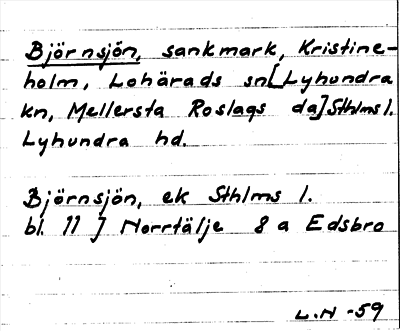 Björnsjön, sankmark, Kristine-
holm, Lohärads sn [Lyhundra
kn, Mellersta Roslags da] Sthlms l.
Lyhundra hd.
Björnsjön, ek Sthlms l.
bl. 11 ] Norrtälje 8 a Edsbro
L.N -59